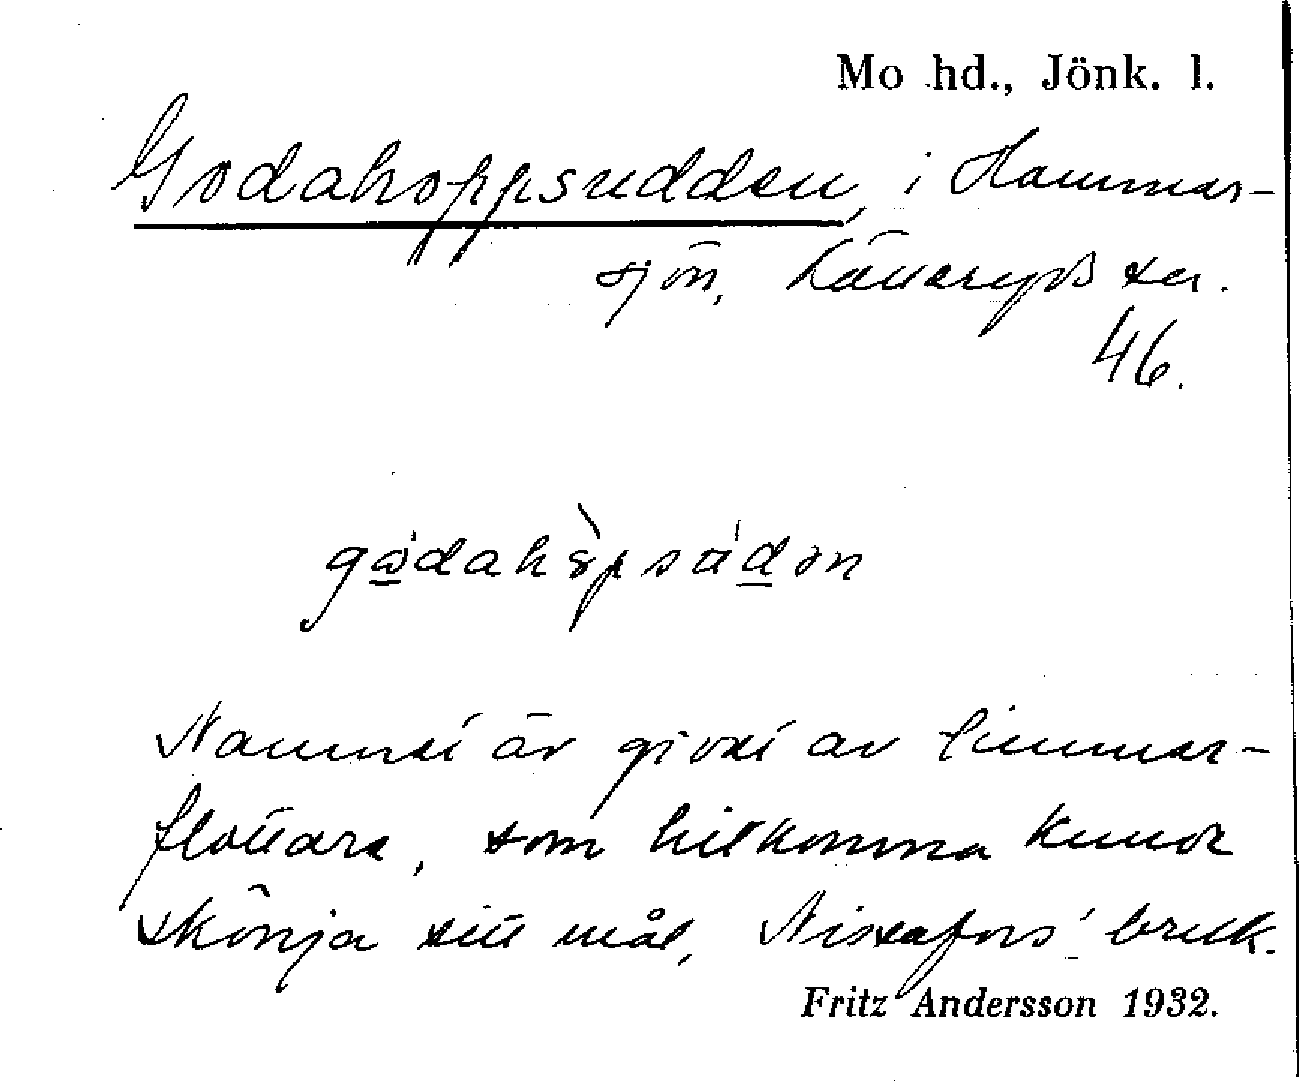 Mo hd., Jönk. l.
Godahoppsudden, i Hammar-
sjön, Källeryds sn.
46.
Namnet är givet av timmer-
flottare, som hitkomna kunde
skönja sitt mål, Nissafors' bruk.
Fritz Andersson 1932.